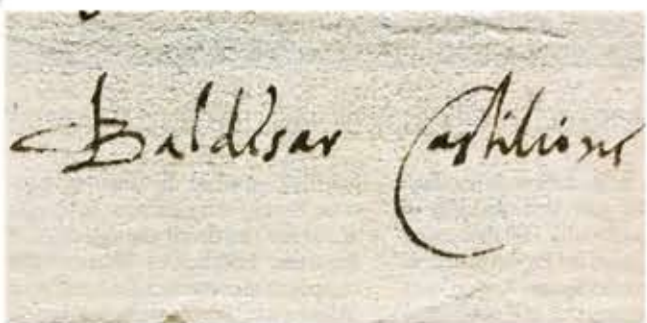 Baldesar Castilione